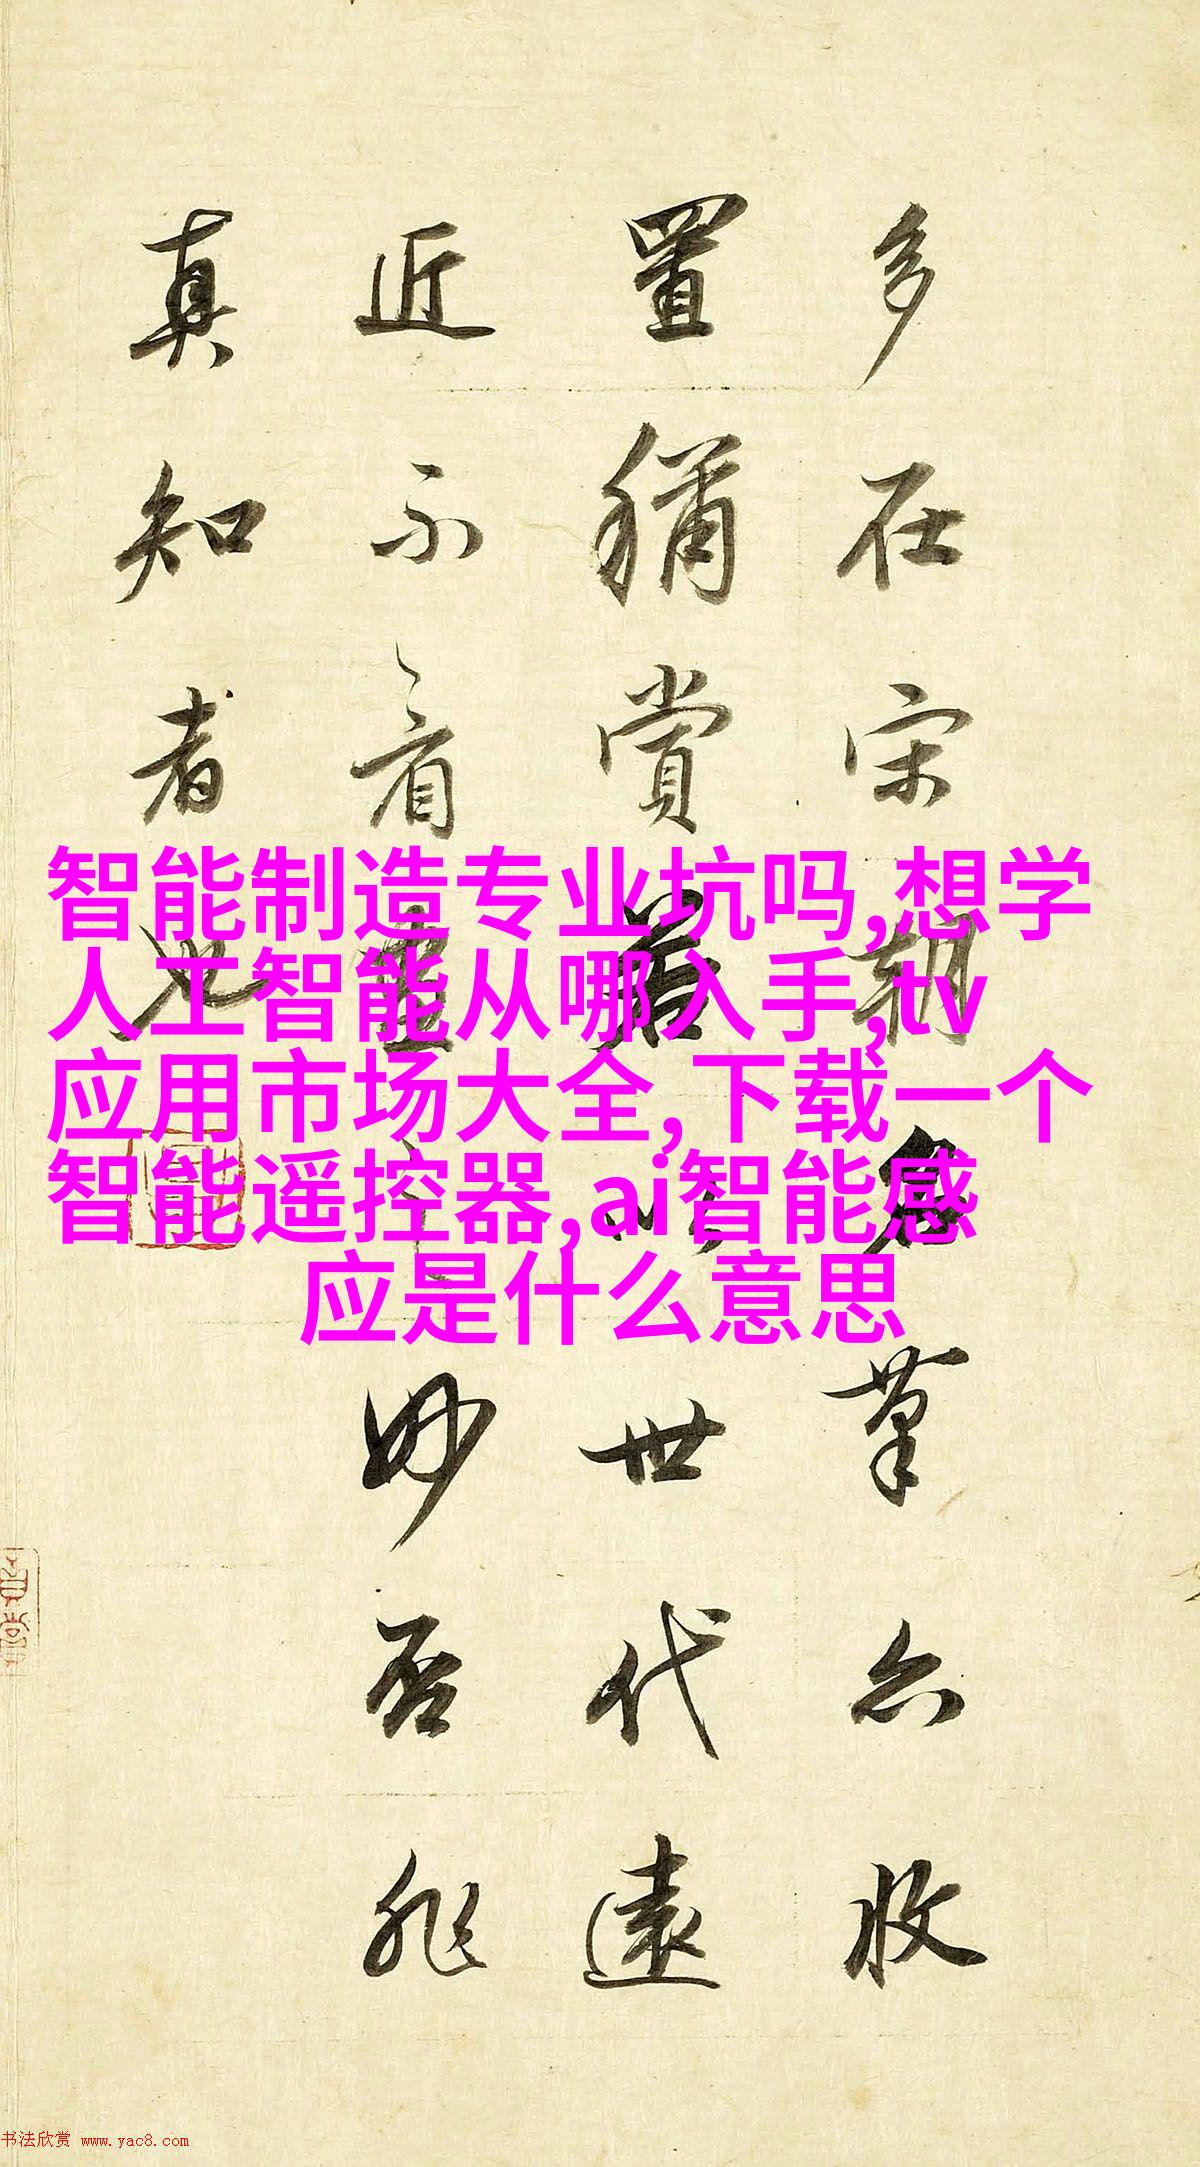 多在宋朝名筆亦收
置稱賞若以世代遠
近不看畫之妙否非
真知者也
智能制造专业坑吗,想学
人工智能从哪入手,tv
应用市场大全,下载一个
智能遥控器,ai智能感
应是什么意思
书法欣赏 www.yac8.com